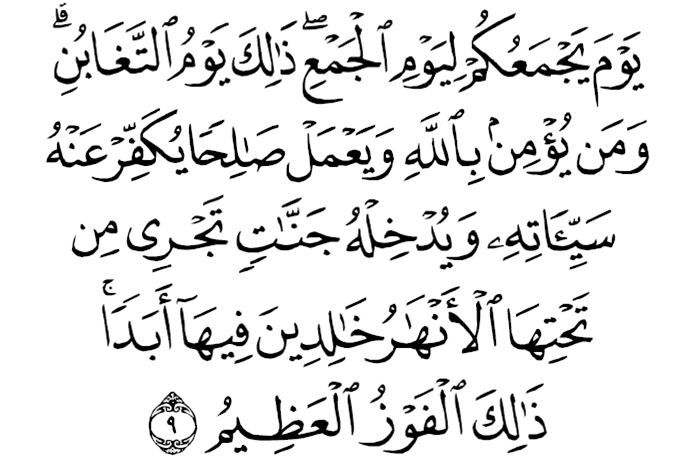 يَوْمَ يَجْمَعُكُمْ لِيَوْمِ ٱلْجَمْعِ ۖ ذَٰلِكَ يَوْمُ ٱلتَّغَابُنِ ۗ
وَمَن يُؤْمِنۢ بِٱللَّهِ وَيَعْمَلْ صَٰلِحًا يُكَفِّرْ عَنْهُ
سَيِّـَٔاتِهِۦ وَيُدْخِلْهُ جَنَّٰتٍ تَجْرِى مِن
تَحْتِهَا ٱلْأَنْهَٰرُ خَٰلِدِينَ فِيهَآ أَبَدًا ۚ
ذَٰلِكَ ٱلْفَوْزُ ٱلْعَظِيمُ ٩